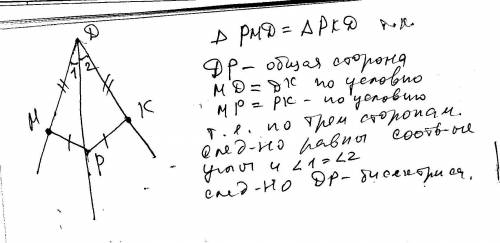 Д
1 2
М
К
Р
Δ РМD = Δ РКD т.к.
DР - общая сторона
МD = DК по условию
МР = РК - по условию
т.е. по трем сторонам.
след-но равны соотв-ые
углы и ∠1=∠2
след-но DР - биссектриса.